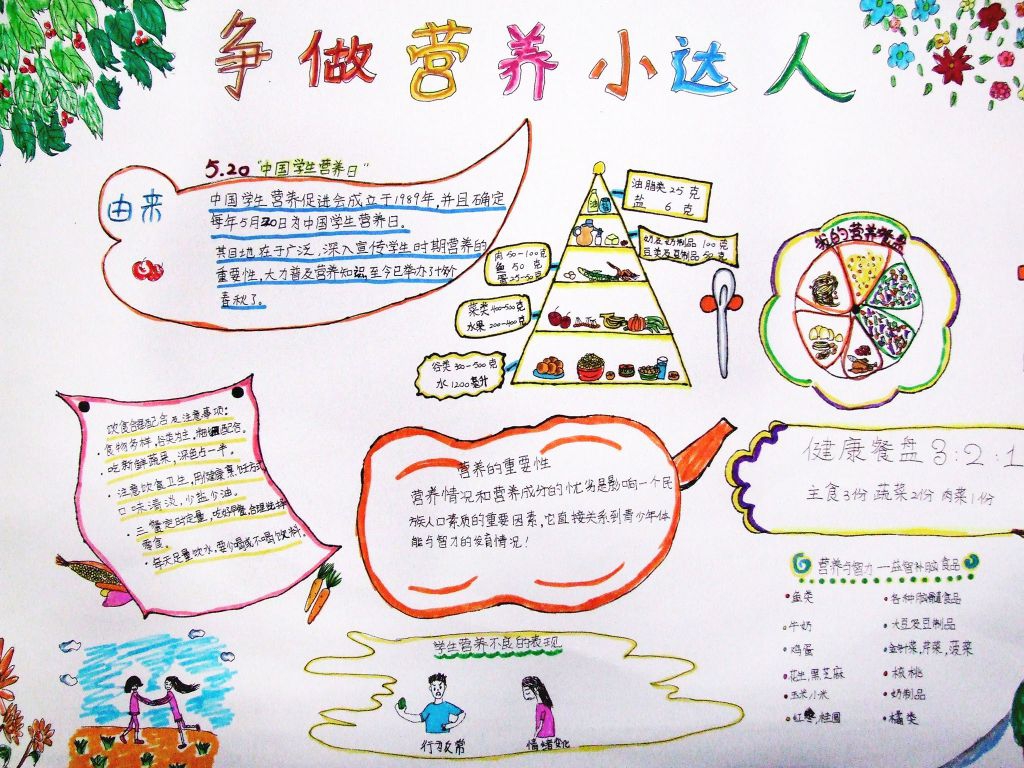 争做营养小达人
5.20 "中国学生营养日"
由来
中国学生营养促进会成立于1989年,并且确定
每年5月20日为中国学生营养日。
其目地在于广泛,深入宣传学生时期营养的
重要性,大力普及营养知识,至今已举办了十个
春秋了。
油脂类 25克
盐 6克
奶及奶制品 100克
豆类及豆制品 50克
肉 50-100克
鱼 50克
蛋 25-50克
菜类 400-500克
水果 200-400克
谷类 300-500克
水 1200毫升
我的营养餐盘
饮食合理配合及注意事项:
·食物多样,谷类为主,粗细配合。
·吃新鲜蔬果,深色占一半。
·注意饮食卫生,用健康烹饪方式
口味清淡,少盐少油。
·三餐定时定量,吃好早餐,合理选择
零食。
·每天足量饮水,要少喝或不喝饮料。
营养的重要性
营养情况和营养成分的优劣是影响一个民
族人口素质的重要因素,它直接关系到青少年体
能与智力的发育情况!
健康餐盘 3:2:1
主食3份 蔬菜2份 肉菜1份
营养与智力—益智补脑食品
·鱼类
·牛奶
·鸡蛋
·花生,黑芝麻
·玉米小米
·红枣,桂圆
·各种脑髓食品
·大豆及豆制品
·金针菜,芹菜,菠菜
·核桃
·奶制品
·橘类
学生营养不良的表现
行为反常
情绪变化